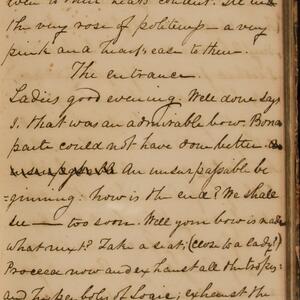 even to their hearts content. He is
the very rose of politeness - a very
pink and hearts-ease to them.
The entrance.
Ladies good evening. Well done says
I. that was an admirable bow. Bona
parte could not have done better.
An unsurpassible be
=ginning: how is the end? We shall
see - too soon. Well your bow is made
what next? Take a seat; (close to a lady!)
Proceed now and exhaust all the tropes;
and hyperboly of Logic; exhaust the